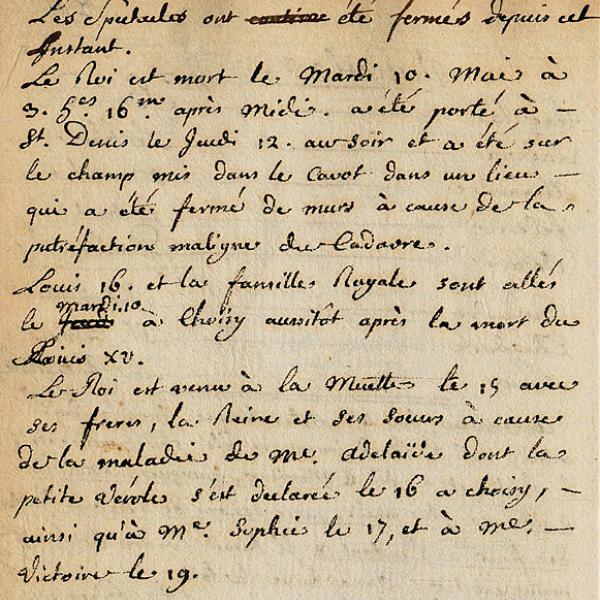 Les Spectacles ont continué été fermés depuis cet
Instant.
Le Roi est mort le Mardi 10. Mai à
3. h.es 16.m après Midi. a été porté à —
St. Denis le Jeudi 12. au soir et a été sur
le champ mis dans le Cavot dans un lieu —
qui a été fermé de murs à cause de la
putréfaction maligne du Cadavre.
Louis 16. et la famille Royale sont allés
mardi.10
le à Choisy aussitôt après la mort du
Louis XV.
Le Roi est venu à la Muette le 15 avec
ses freres, la Reine et ses soeurs à cause
de la maladie de Me. Adelaïde dont la
petite Vérole s'est declarée le 16 a choisy, —
ainsi qu'à Me. Sophie le 17, et à Me. —
Victoire le 19.